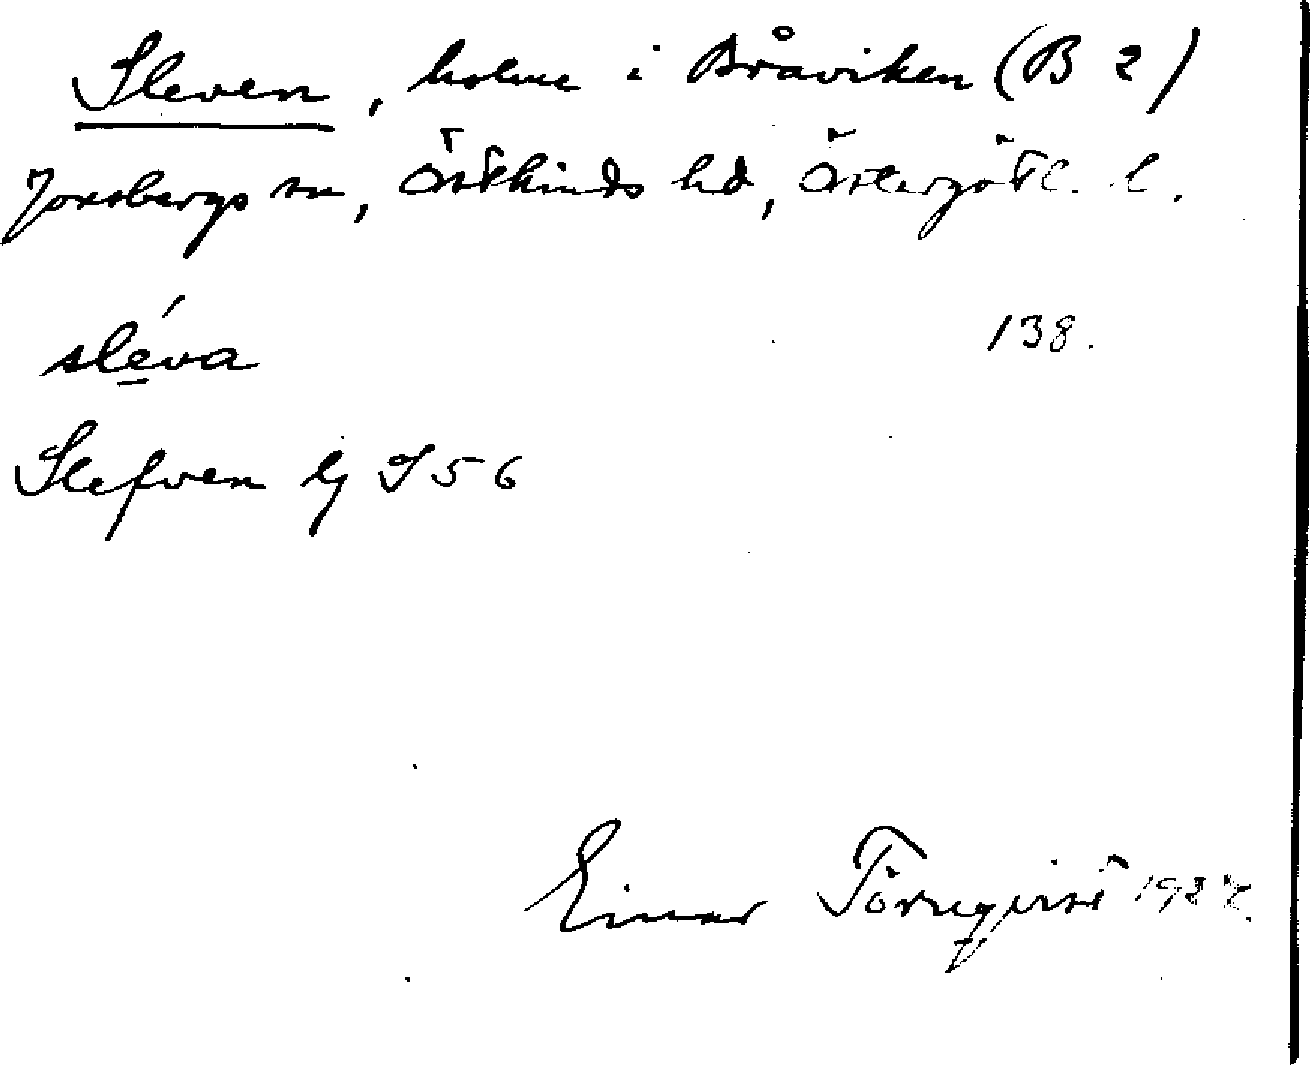 Sleven, holme i Bråviken (B 2)
Jonsbergs sn, Östkinds hd, Östergötl. l.
sléva 138.
Slefven Gj S 56
Einar Törnqvist